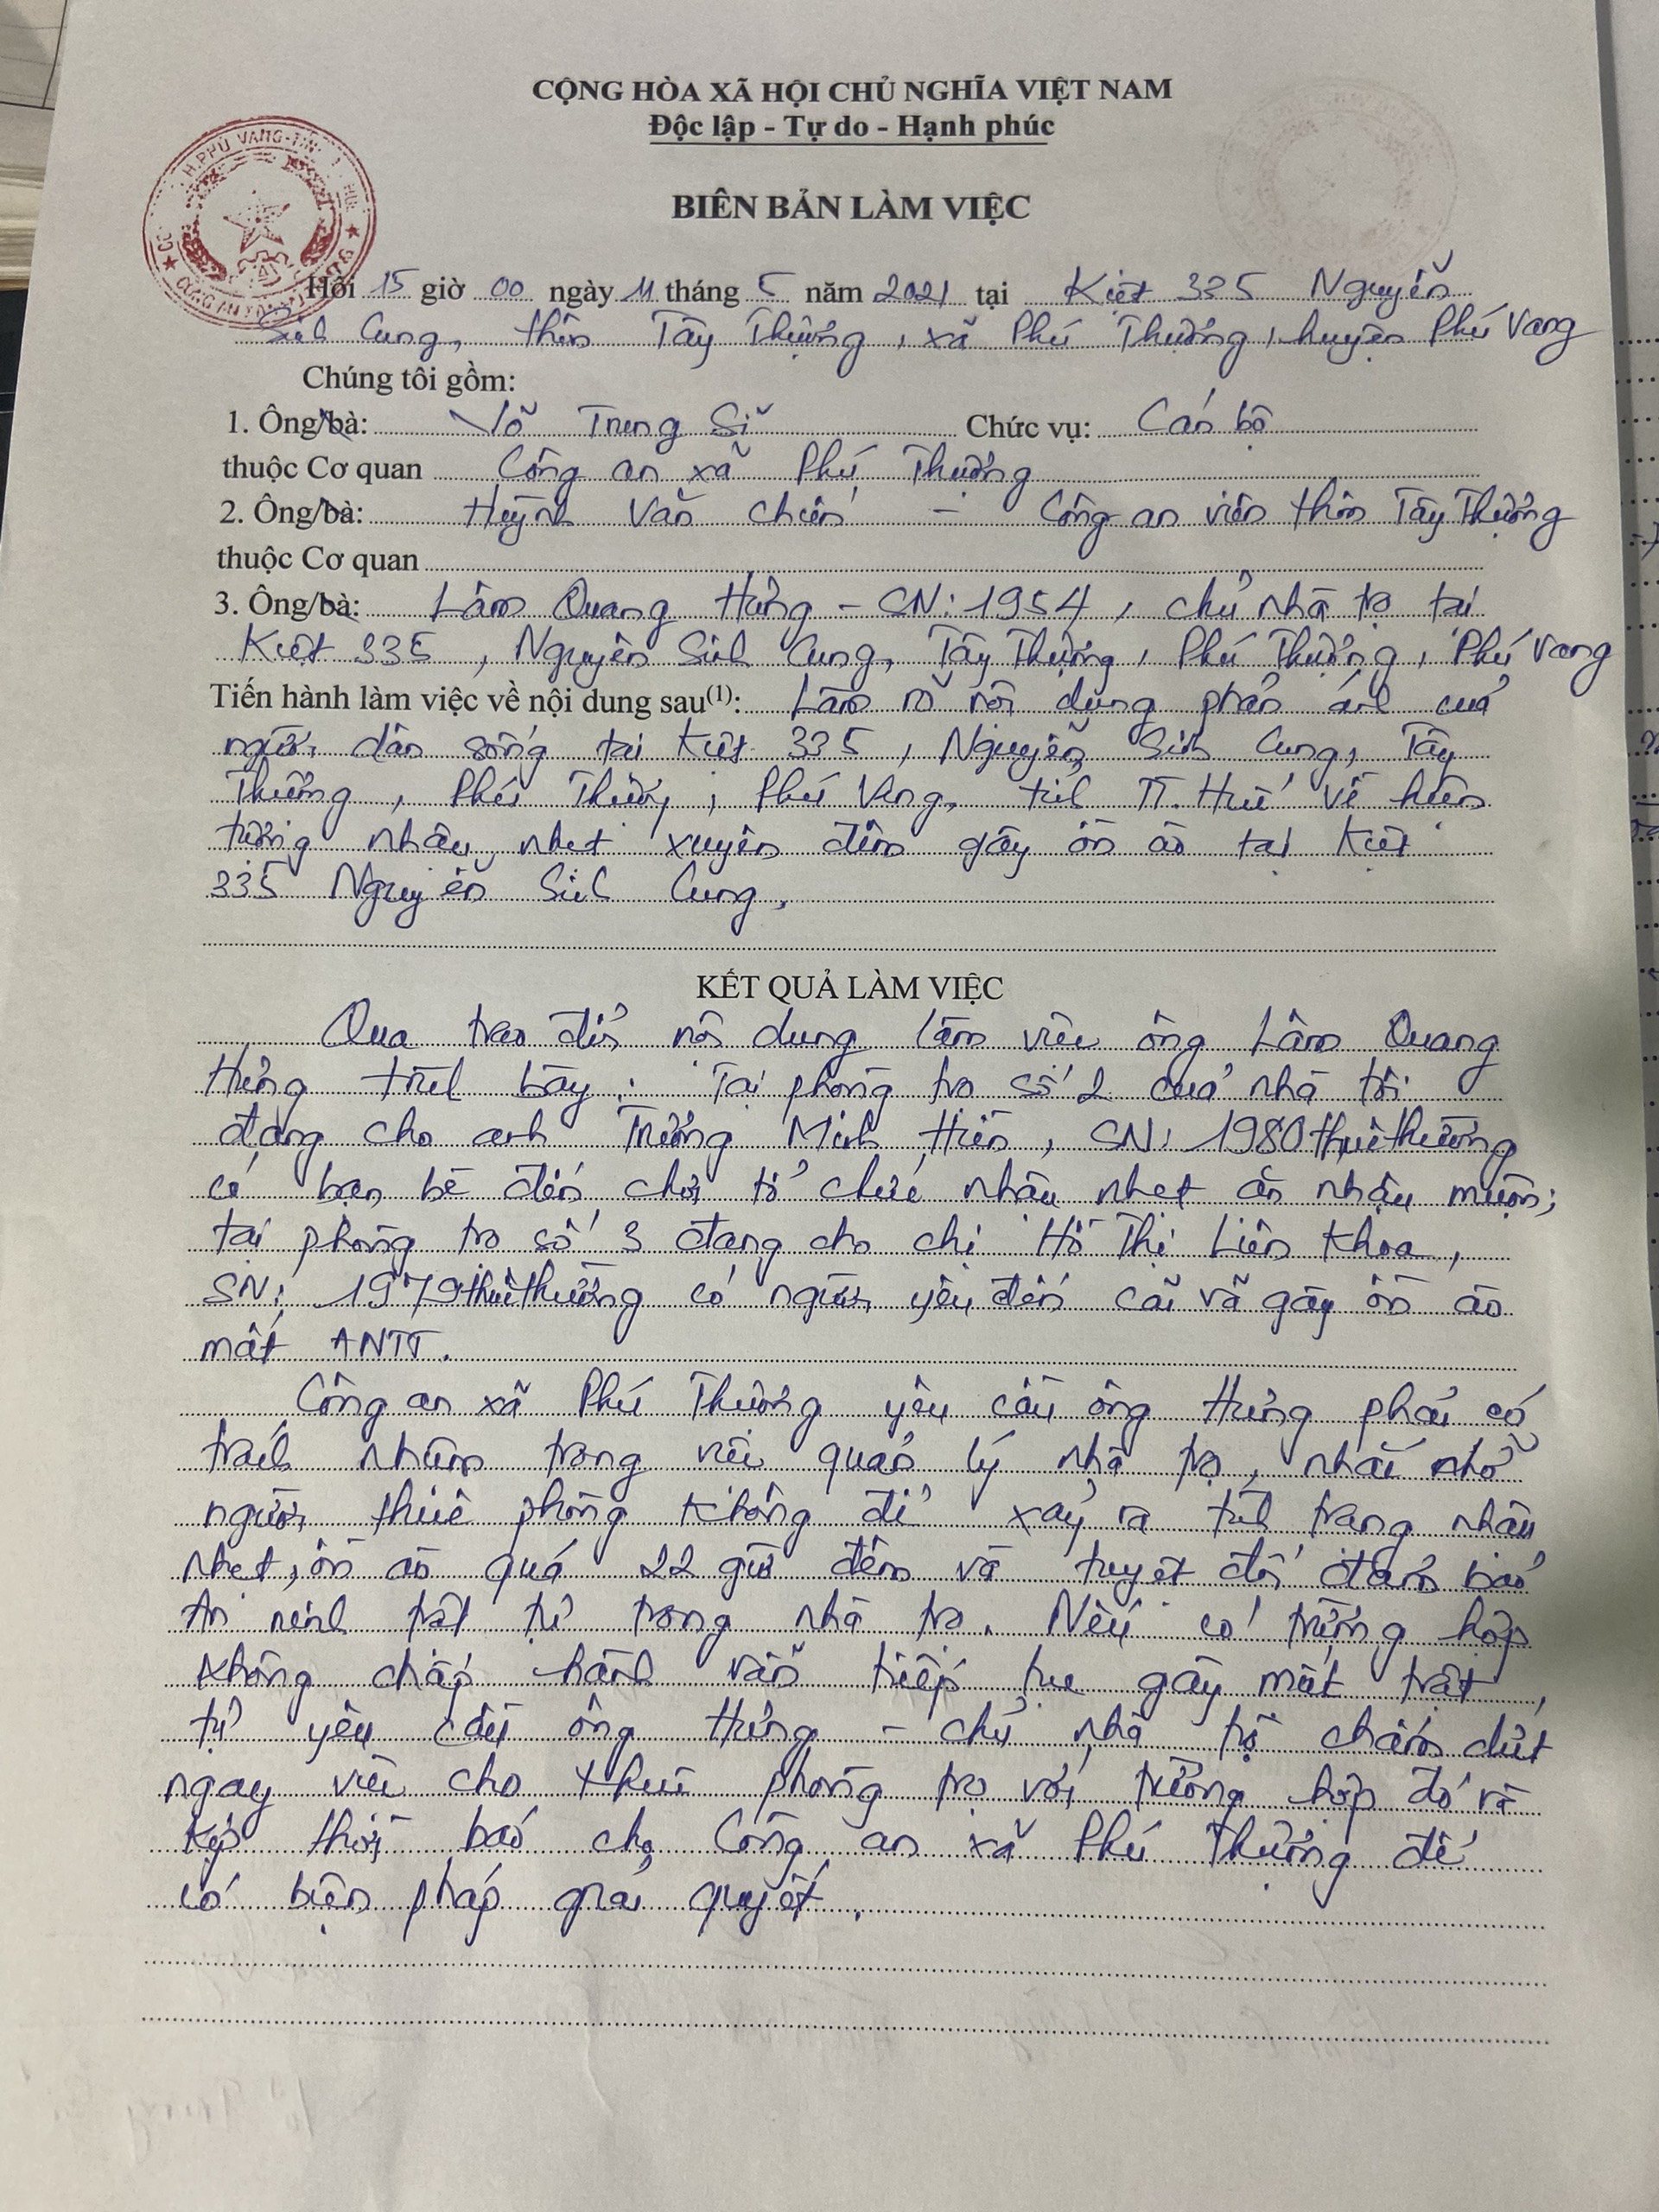 CỘNG HÒA XÃ HỘI CHỦ NGHĨA VIỆT NAM
Độc lập - Tự do - Hạnh phúc
BIÊN BẢN LÀM VIỆC
Hồi 15 giờ 00 ngày 11 tháng 5 năm 2021 tại Kiệt 335 Nguyễn
Sinh Cung, thôn Tây Thượng, xã Phú Thượng, huyện Phú Vang
Chúng tôi gồm:
1. Ông/bà: Võ Trung Sĩ Chức vụ: Cán bộ
thuộc Cơ quan Công an xã Phú Thượng
2. Ông/bà: Huỳnh Văn Chiến - Công an viên thôn Tây Thượng
thuộc Cơ quan
3. Ông/bà: Lâm Quang Hưng - SN: 1954, chủ nhà trọ tại
Kiệt 335, Nguyễn Sinh Cung, Tây Thượng, Phú Thượng, Phú Vang
Tiến hành làm việc về nội dung sau(1): Làm rõ nội dung phản ánh của
người dân sống tại Kiệt 335, Nguyễn Sinh Cung, Tây
Thượng, Phú Thượng, Phú Vang, tỉnh TT. Huế về hiện
tượng nhậu nhẹt xuyên đêm gây ồn ào tại Kiệt
335 Nguyễn Sinh Cung.
KẾT QUẢ LÀM VIỆC
Qua trao đổi nội dung làm việc ông Lâm Quang
Hưng trình bày: Tại phòng trọ số 2 của nhà tôi
đang cho anh Trương Minh Hiền, SN: 1980 thuê thường
có bạn bè đến chơi tổ chức nhậu nhẹt ăn nhậu muộn;
tại phòng trọ số 3 đang cho chị Hồ Thị Liên Khoa,
SN: 1979 thuê thường có người yêu đến cãi vã gây ồn ào
mất ANTT.
Công an xã Phú Thượng yêu cầu ông Hưng phải có
trách nhiệm trong việc quản lý nhà trọ, nhắc nhở
người thuê phòng không để xảy ra tình trạng nhậu
nhẹt, ồn ào quá 22 giờ đêm và tuyệt đối đảm bảo
An ninh trật tự trong nhà trọ. Nếu có trường hợp
không chấp hành vẫn tiếp tục gây mất trật
tự yêu cầu ông Hưng - chủ nhà trọ chấm dứt
ngay việc cho thuê phòng trọ với trường hợp đó và
kịp thời báo cho Công an xã Phú Thượng để
có biện pháp giải quyết.